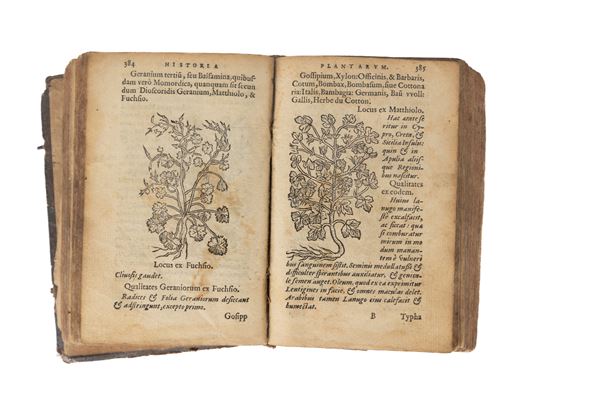 384 HISTORIA
Geranium tertiũ, seu Balsamina, quibus-
dam verò Momordica, quanquam sit secun
dum Dioscoridis Geranium, Matthiolo, &
Fuchsio.
Locus ex Fuchsio.
Cliuosis gaudet.
Qualitates Geraniorum ex Fuchsio.
Radices & Folia Geraniorum desiccant
& adstringunt, excepto primo.
Gossipp
PLANTARVM. 385
Gossipium, Xylon: Officinis, & Barbaris,
Cotum, Bombax, Bombasum, siue Cottona
ria: Italis. Bambagia: Germanis, Baũ vvoll:
Gallis, Herbe du Cotton.
Locus ex Matthiolo.
Hac ante se
ritur in Cy-
pro, Creta, &
Sicilia Insulis:
quin & in
Apulia aliis-
que Regioni
bus nascitur.
Qualitates
ex eodem.
Huius la-
nugo manife-
stè excalfacit,
ac siccat: quæ
si comburatur
mirum in mo
dum manan-
tem è vulneri
bus sanguinem sistit. Seminis medulla tussi &
difficulter spirantibus auxiliatur, & genitu-
le semen auget. Oleum, quod ex ea exprimitur
Lentigines in facie, & omnes maculas delet.
Arabibus tamen Lanugo eius calefacit &
humectat.
B Typha